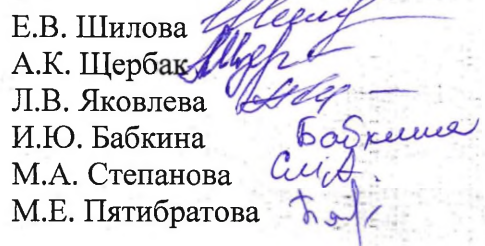 Е.В. Шилова
А.К. Щербак
Л.В. Яковлева
И.Ю. Бабкина Бабкина
М.А. Степанова
М.Е. Пятибратова